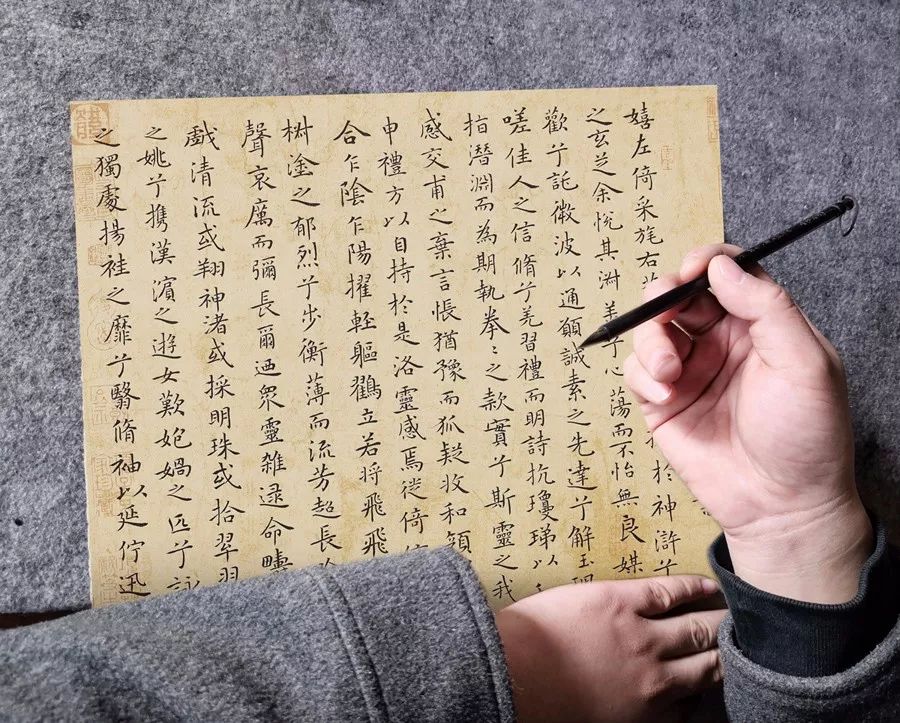 嬉左倚采旄右於神滸兮
之玄芝余悅其淑美兮心蕩而不怡無良媒
歡兮託微波以通願誠素之先達兮解玉
嗟佳人之信脩兮羌習禮而明詩抗瓊珶以
指潛淵而為期執拳〻之款實兮斯靈之我
感交甫之棄言悵猶豫而狐疑收和顏
申禮方以自持於是洛靈感焉徙倚
合乍陰乍陽擢輕軀鸖立若將飛飛
樹塗之郁烈兮步衡薄而流芳超長
聲哀厲而彌長爾迺眾靈雜遝命疇
戲清流或翔神渚或採明珠或拾翠羽
之姚兮攜漢濱之遊女歎匏媧之匹兮詠
之獨處揚袿之靡兮翳脩袖以延佇迅